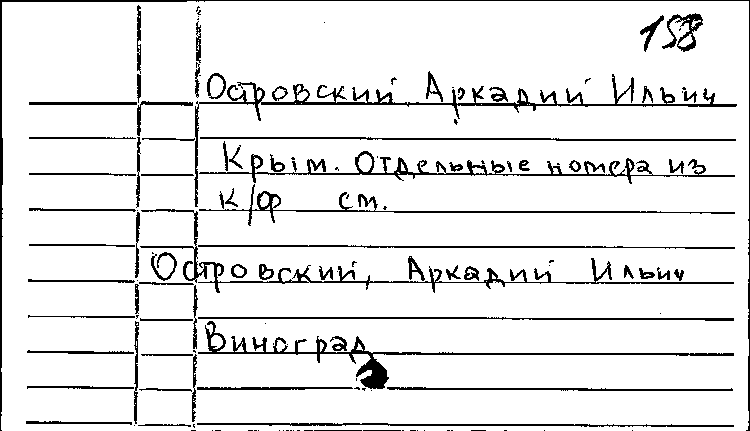 158
Островский Аркадий Ильич
Крым. Отдельные номера из
к/ф см.
Островский, Аркадий Ильич
Виноград